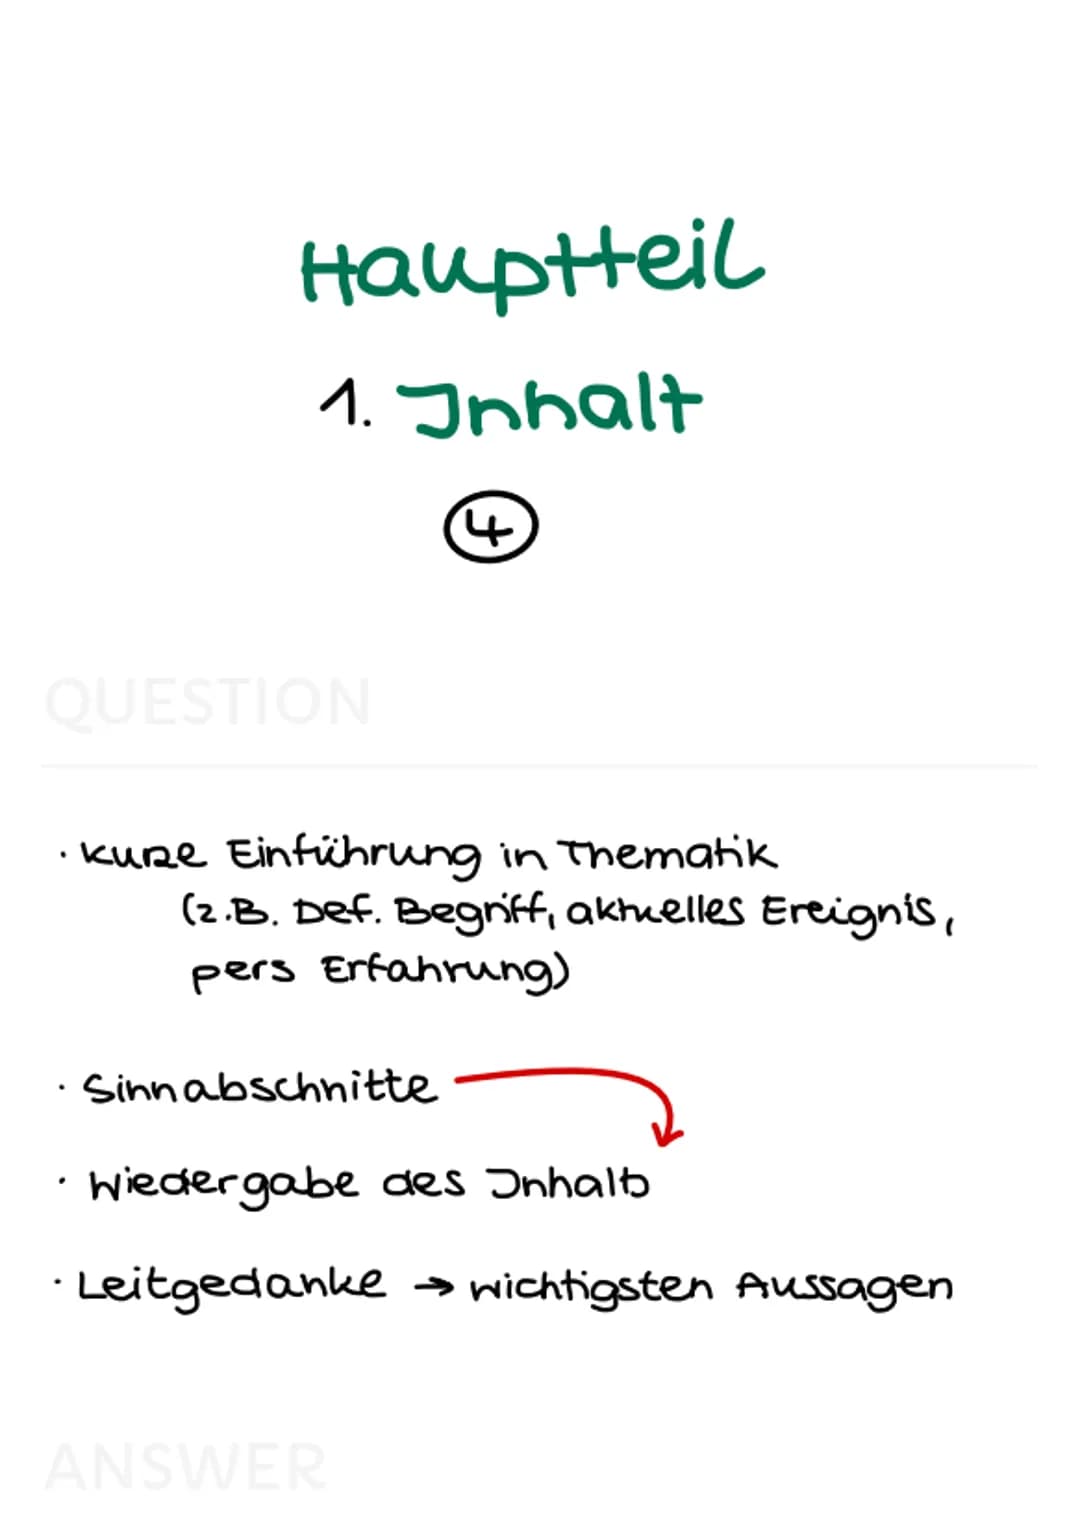 Hauptteil
1. Inhalt
4
QUESTION
· kurze Einführung in Thematik
(z.B. Def. Begriff, aktuelles Ereignis,
pers Erfahrung)
· Sinnabschnitte
· Wiedergabe des Inhalts
· Leitgedanke → wichtigsten Aussagen
ANSWER